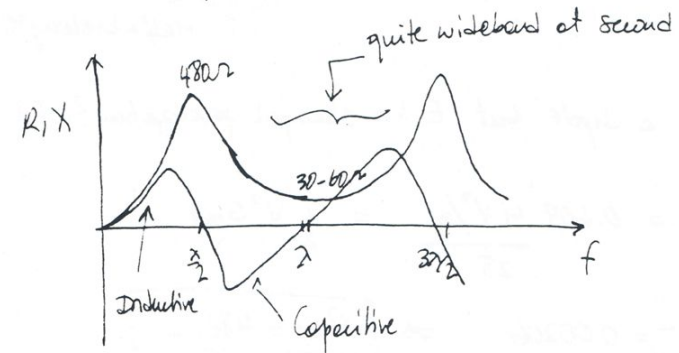 quite wideband at second
480Ω
R, X
30-60Ω
λ/2
λ
3λ/2
f
Inductive
Capacitive